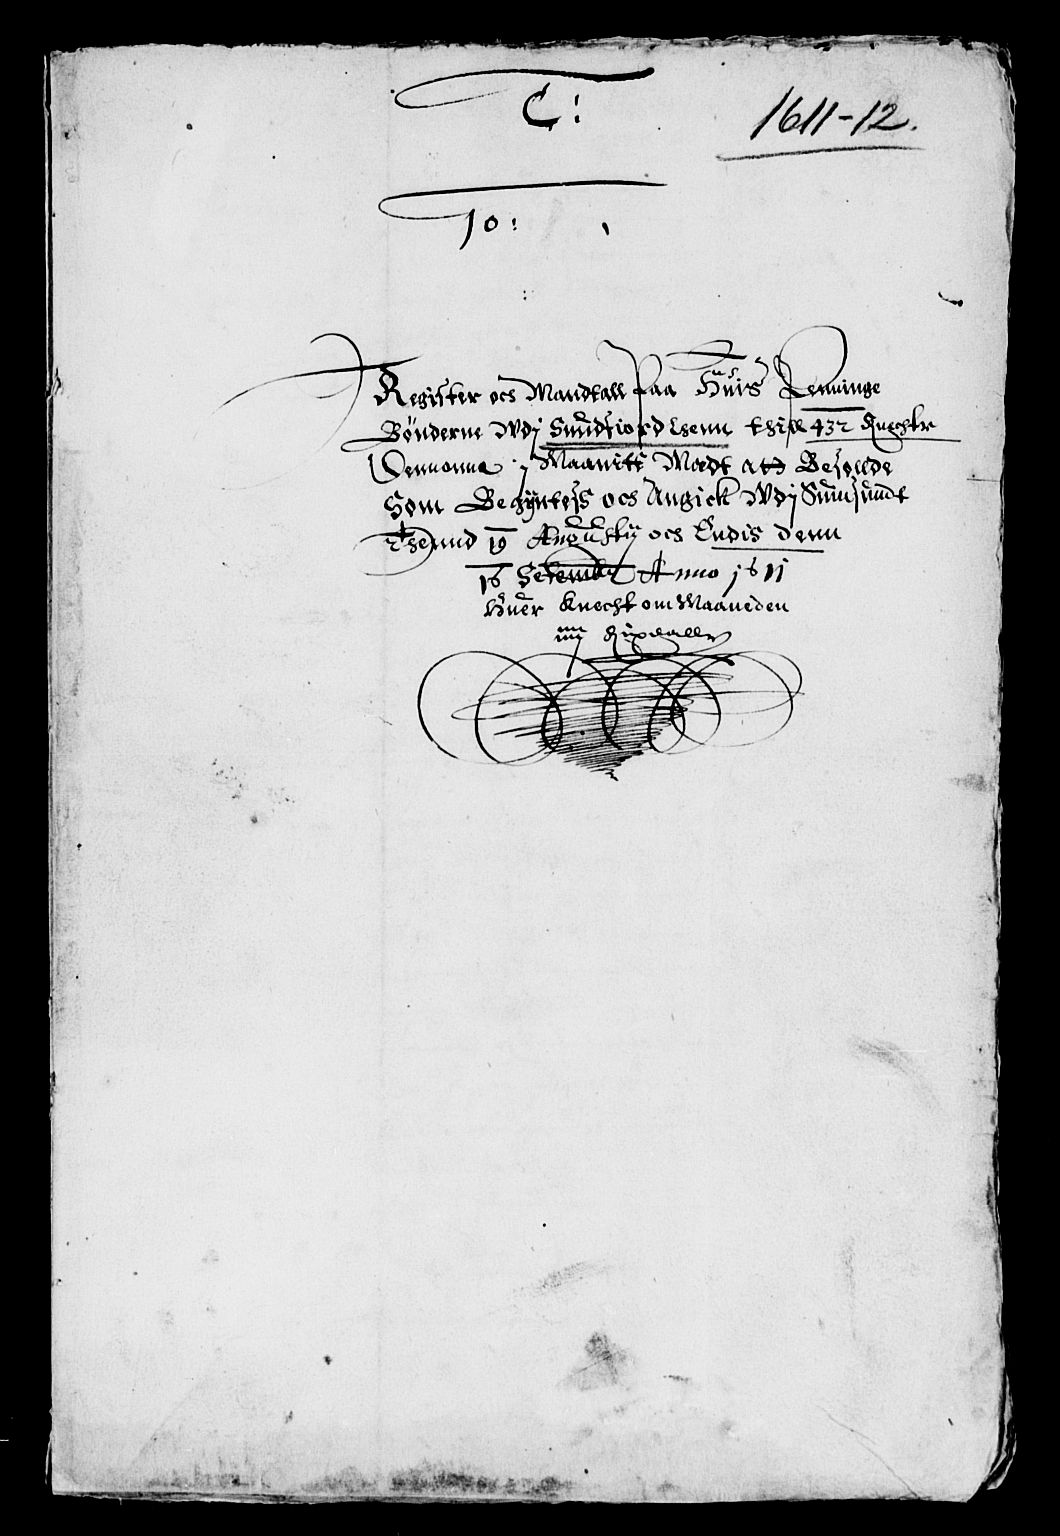 C:
1611-12.
10:
Register och Mandtall paa Huis Penninge
Bönderne Wdj Sundfiord Lhenn thill 432 Knechtr
Dennonne j Maanitt Mødt att Besollde
Som Begÿntess och Angick Wdj Sumsundt
Thennd 19 Augustÿ och Endis denn
16 Setember Anno 1611
Huer Knecht om Maaneden
iiij Rixdaller